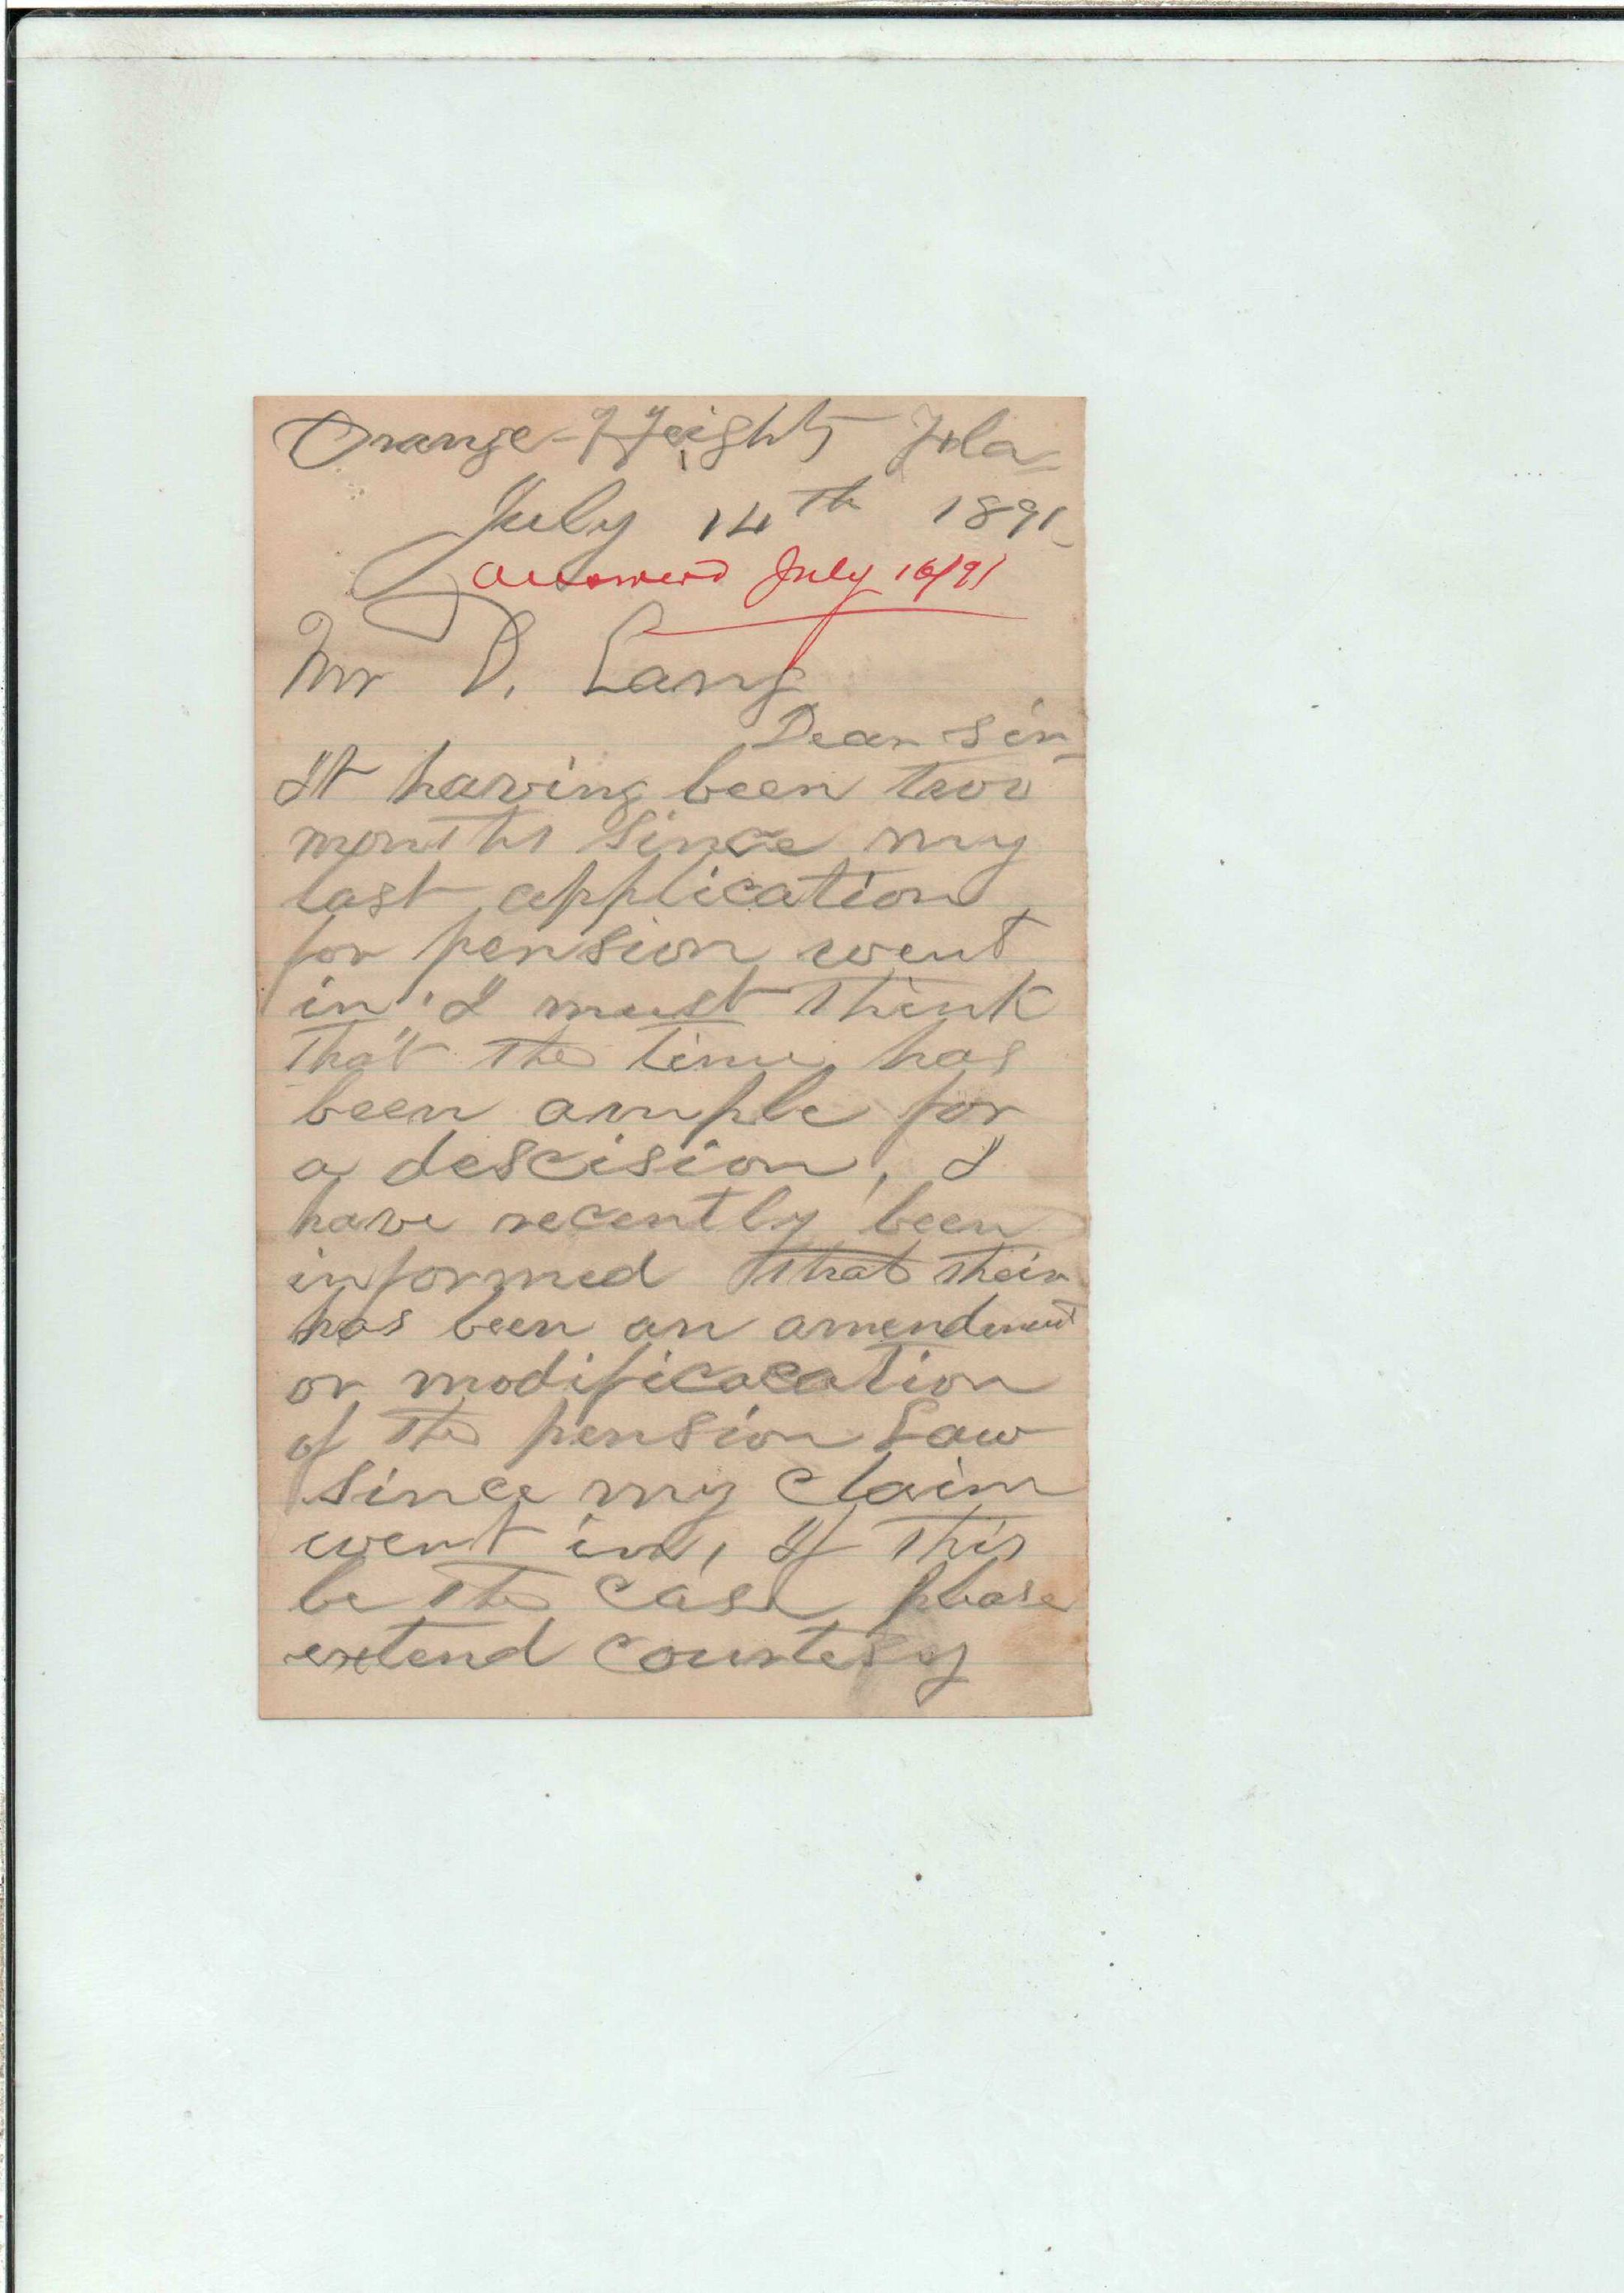 Orange-Heights Fla
July 14th 1891
Answered July 16/91
Mr D. Lang
Dear Sir
It having been two
months since my
last application
for pension went
in, I must think
that the time has
been ample for
a descision, I
have recently been
informed that their
has been an amendment
or modificacation
of the pension Law
since my claim
went in, If this
be the case please
extend courtesy